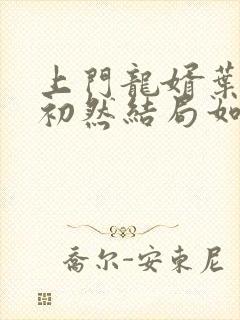 上門龍婿葉
初然結局如
喬尔-安東尼